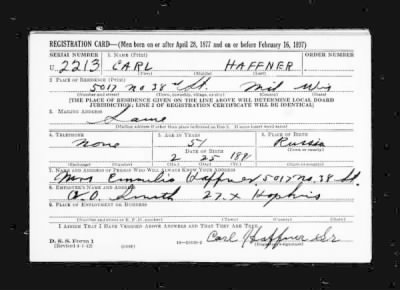 REGISTRATION CARD—(Men born on or after April 28, 1877 and on or before February 16, 1897)
SERIAL NUMBER 1. NAME (Print) ORDER NUMBER
U 2213 CARL HAFFNER
(First) (Middle) (Last)
2. PLACE OF RESIDENCE (Print)
5017 No 38th St. Mil Wis
(Number and street) (Town, township, village, or city) (County) (State)
[THE PLACE OF RESIDENCE GIVEN ON THE LINE ABOVE WILL DETERMINE LOCAL BOARD
JURISDICTION; LINE 2 OF REGISTRATION CERTIFICATE WILL BE IDENTICAL]
3. MAILING ADDRESS
Same
[Mailing address if other than place indicated on line 2. If same insert word same]
4. TELEPHONE 5. AGE IN YEARS 6. PLACE OF BIRTH
None 51 Russia
DATE OF BIRTH (Town or county)
2 25 1891
(Exchange) (Number) (Mo.) (Day) (Yr.) (State or country)
7. NAME AND ADDRESS OF PERSON WHO WILL ALWAYS KNOW YOUR ADDRESS
Mrs Haffner 5017 No. 38 St.
8. EMPLOYER'S NAME AND ADDRESS
A.O. Smith 27 + Hopkins
9. PLACE OF EMPLOYMENT OR BUSINESS
(Number and street or R. F. D. number) (Town) (County) (State)
I AFFIRM THAT I HAVE VERIFIED ABOVE ANSWERS AND THAT THEY ARE TRUE.
D. S. S. Form 1
(Revised 4-1-42) (over) Carl Haffner Sr
(Registrant's signature)